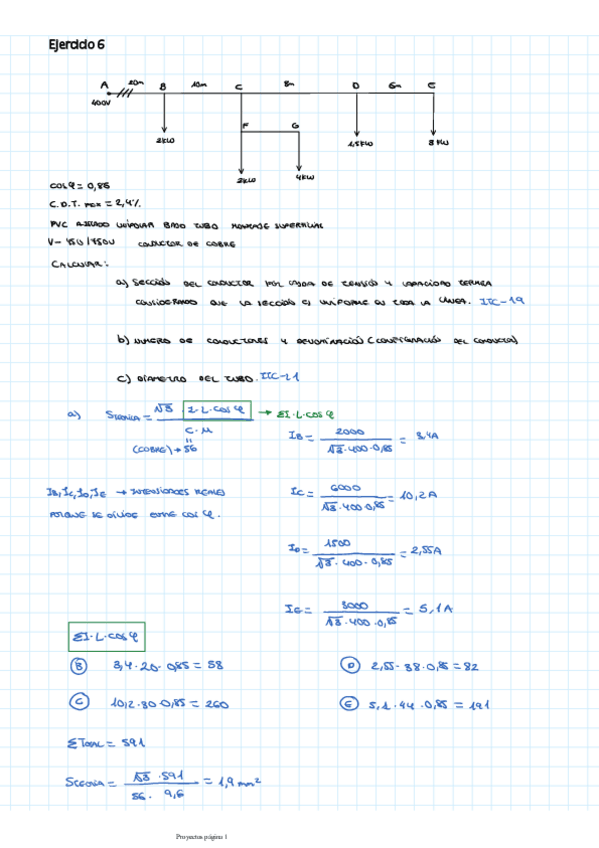 Ejercicio 6
A 20m B 10m C 8m D 6m E
400V
F G
2kW 1,5kW 3kW
2kW 4kW
cosφ = 0,85
C.D.T. max = 2,4%
PVC aislado unipolar bajo tubo montaje superficial
V- 450/750V conductor de cobre
Calcular:
a) Sección del conductor por caída de tensión y capacidad térmica
considerando que la sección es uniforme en toda la línea. ITC-19
b) Número de conductores y denominación (configuración del conductor)
c) Diámetro del tubo. ITC-21
a) Steórica = √3 · I · L · cosφ → ΣI·L·cosφ
C · μ
(cobre) → 56
IB = 2000 / √3·400·0,85 = 3,4A
IB, IC, ID, IE → intensidades reales
porque se divide entre cosφ.
IC = 6000 / √3·400·0,85 = 10,2A
ID = 1500 / √3·400·0,85 = 2,55A
IE = 3000 / √3·400·0,85 = 5,1A
ΣI·L·cosφ
B 3,4·20·0,85 = 58
D 2,55·38·0,85 = 82
C 10,2·30·0,85 = 260
E 5,1·44·0,85 = 191
ΣTotal = 591
Steoria = √3·591 / 56·9,6 = 1,9mm²
Proyectos página 1